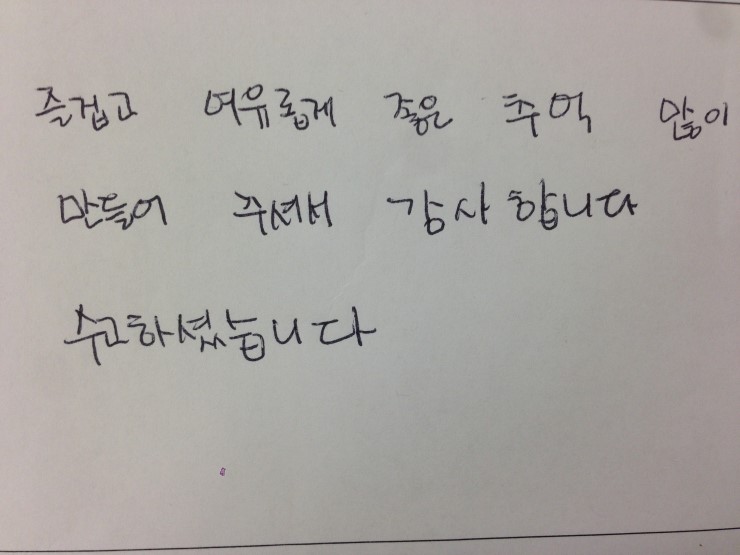 즐겁고 여유롭게 좋은 추억 많이
만들어 주셔서 감사합니다
수고하셨습니다